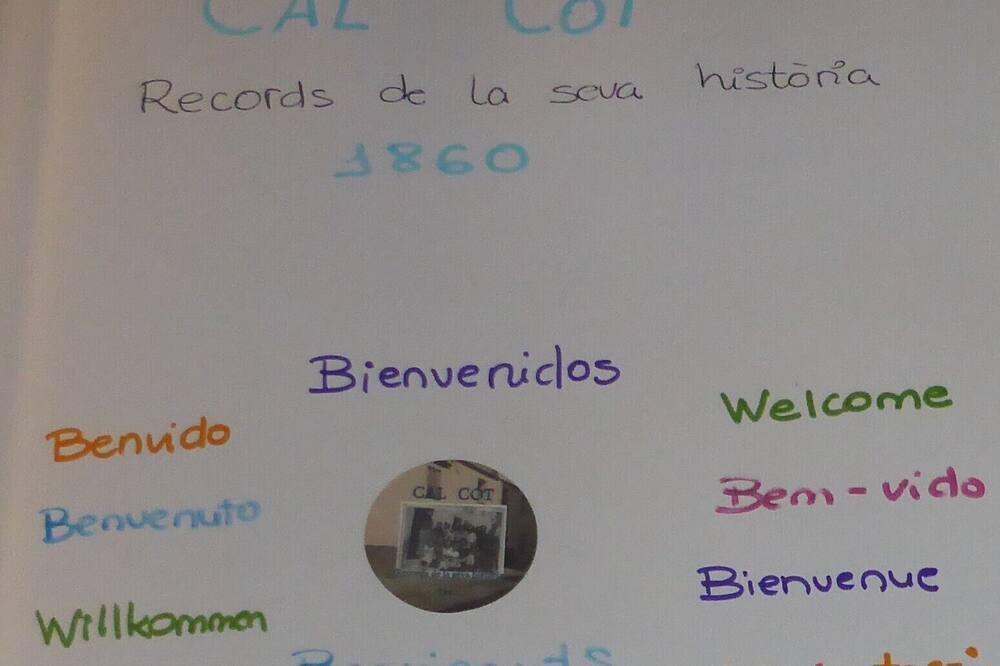 CAL COT
Records de la seva història
1860
Bienvenidos
Welcome
Benvido
Bem-vido
Benvenuto
CAL COT
Bienvenue
Willkommen